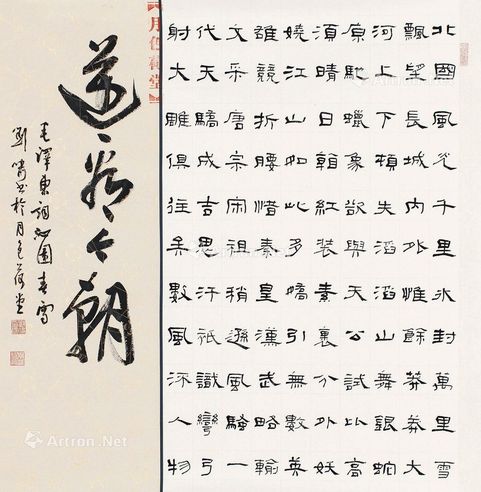 北國風光千里冰封萬里雪
飄望長城內外惟餘莽莽大
河上下頓失滔滔山舞銀蛇
原馳蠟象欲與天公試比高
須晴日看紅裝素裹分外妖
嬈江山如此多嬌引無數英
雄競折腰惜秦皇漢武略輸
文采唐宗宋祖稍遜風騷一
代天驕成吉思汗祇識彎弓
射大雕俱往矣數風流人物
月色荷堂
還看今朝
毛澤東詞沁園春雪
劉書於月色荷堂
Artron.Net